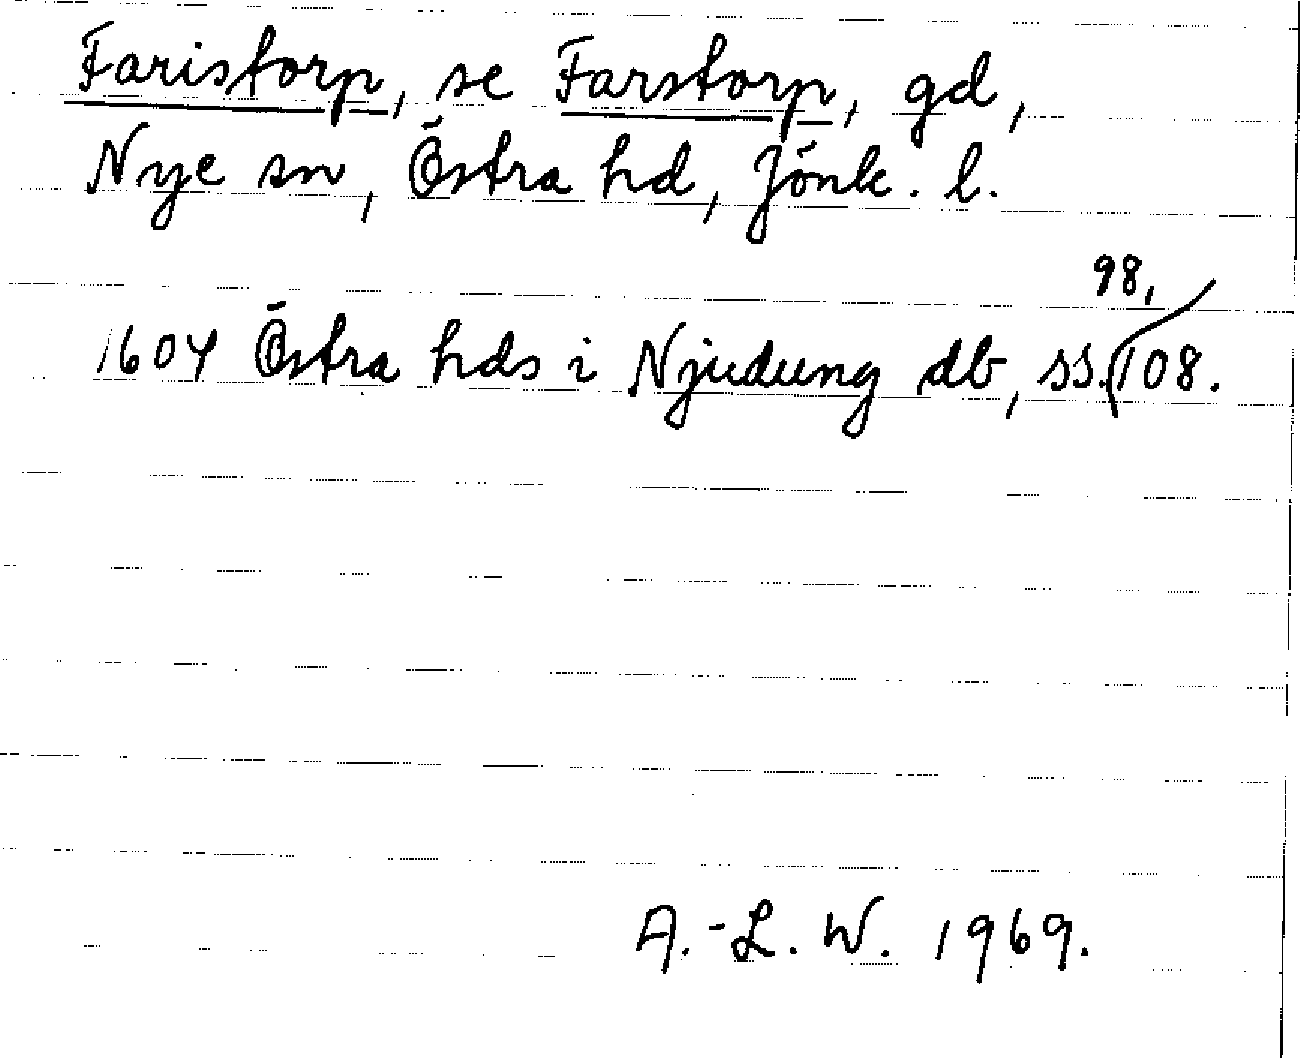 Faristorp, se Farstorp, gd,
Nye sn, Östra hd, Jönk. l.
1604 Östra hds i Njudung db, ss. 98, 108.
A.-L. W. 1969.